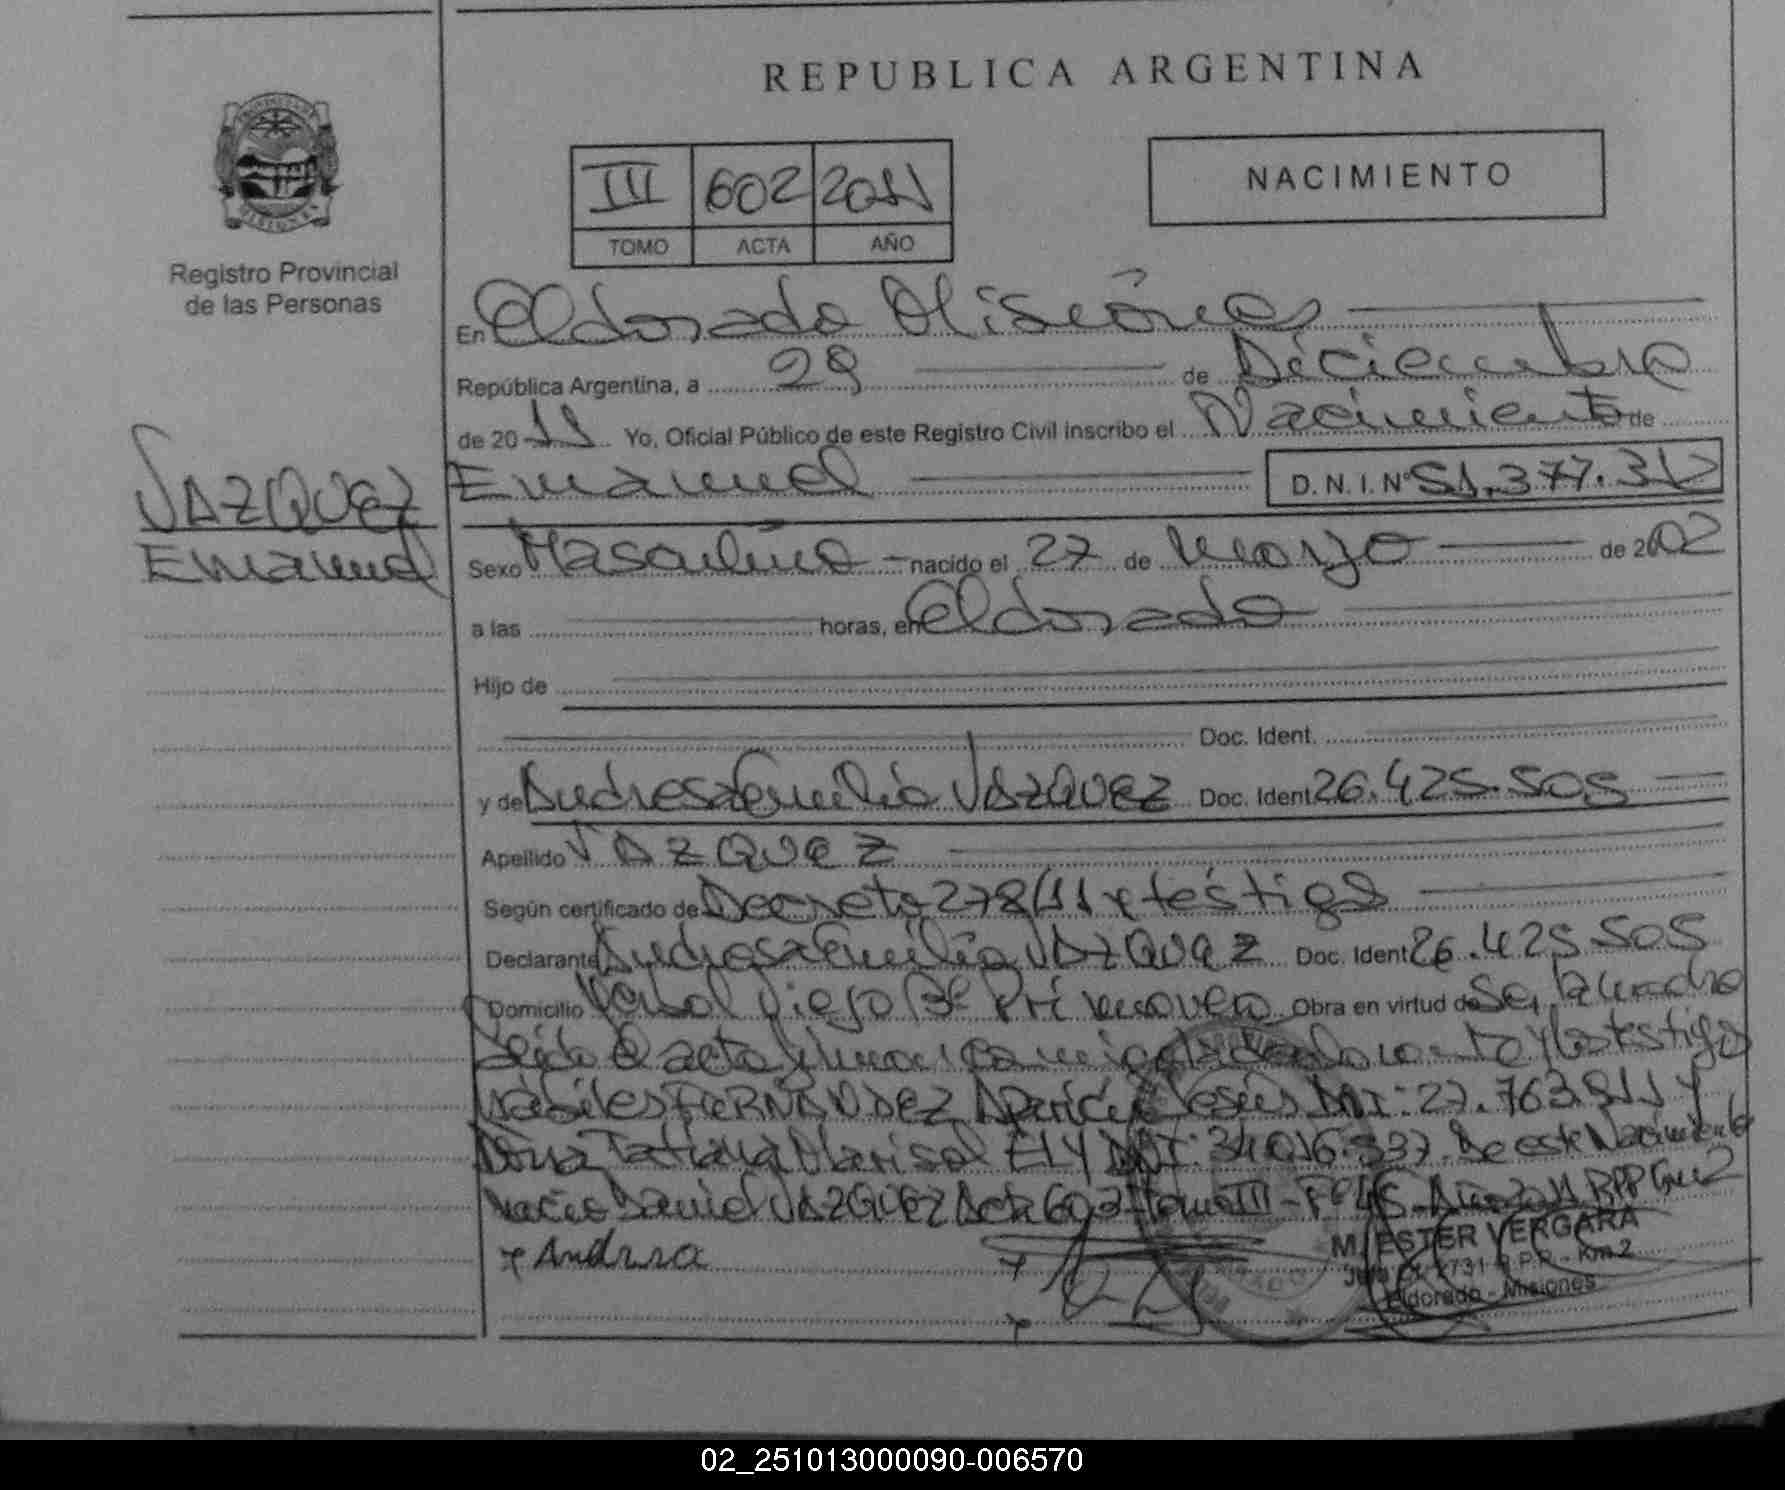 REPUBLICA ARGENTINA
NACIMIENTO
III 602 2011
TOMO ACTA AÑO
Registro Provincial
de las Personas
En Eldorado Misiones
República Argentina, a 29 de Diciembre
de 2011 Yo, Oficial Público de este Registro Civil inscribo el Nacimiento de
VAZQUEZ
Emanuel
Emanuel D.N.I. Nº 51.377.31
Sexo Masculino nacido el 27 de marzo de 2002
a las horas, en Eldorado
Hijo de
Doc. Ident.
y de Andresa Emilia VAZQUEZ Doc. Ident 26.425.505
Apellido VAZQUEZ
Según certificado de Decreto 278/11 y testigo
Declarante Andresa Emilia VAZQUEZ Doc. Ident 26.425.505
Domicilio Viejo Bº Primavera Obra en virtud de Ser la madre
Leido el acta
hábiles FERNANDEZ Jesús DNI: 27.763.811 y
Doña Tatiana Marisol ELY DNI: 34.016.337. De este Nacimiento
nacio Daniel VAZQUEZ Acta 603 Tomo III - Fº 45 - Año 2011 RPP Km 2
M. ESTER VERGARA
+ Andrea
R.P.P. - Km 2
Eldorado - Misiones
02_251013000090-006570